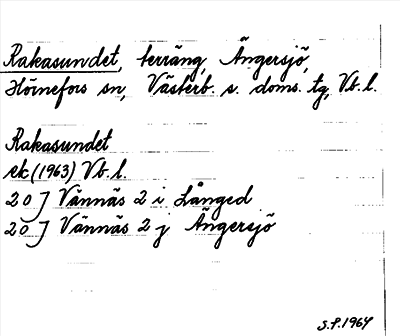 Rakasundet, terräng, Ängersjö,
Hörnefors sn, Västerb. s. doms. tg, Vb. l.
Rakasundet
ek (1963) Vb. l.
20 J Vännäs 2 i Långed
20 J Vännäs 2 j Ängersjö
S.P. 1964